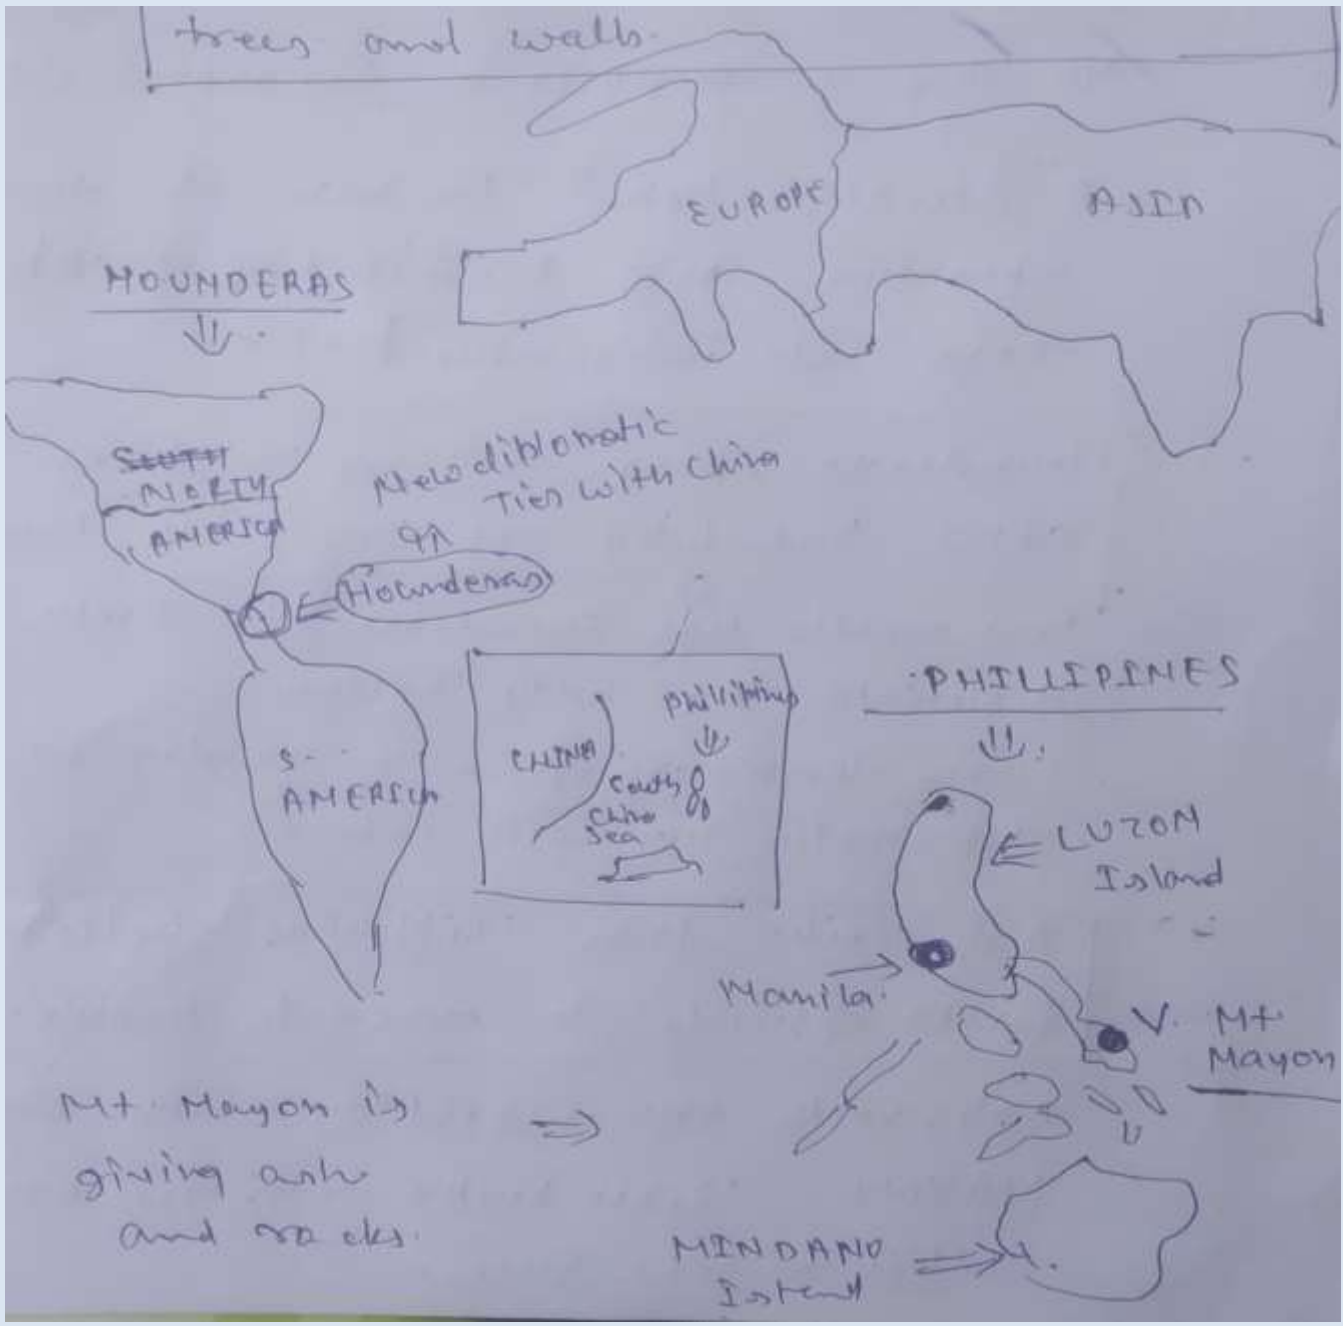 trees and walls.
EUROPE
ASIA
HOUNDERAS
SOUTH
NORTH
AMERICA
New diplomatic
Ties with China
Hounderas
S-
AMERICA
Phillipines
CHINA
South
China
Sea
PHILLIPINES
LUZON
Island
Manila.
V. Mt
Mayon
Mt. Mayon is
giving ash
and rocks.
MINDANO
Island